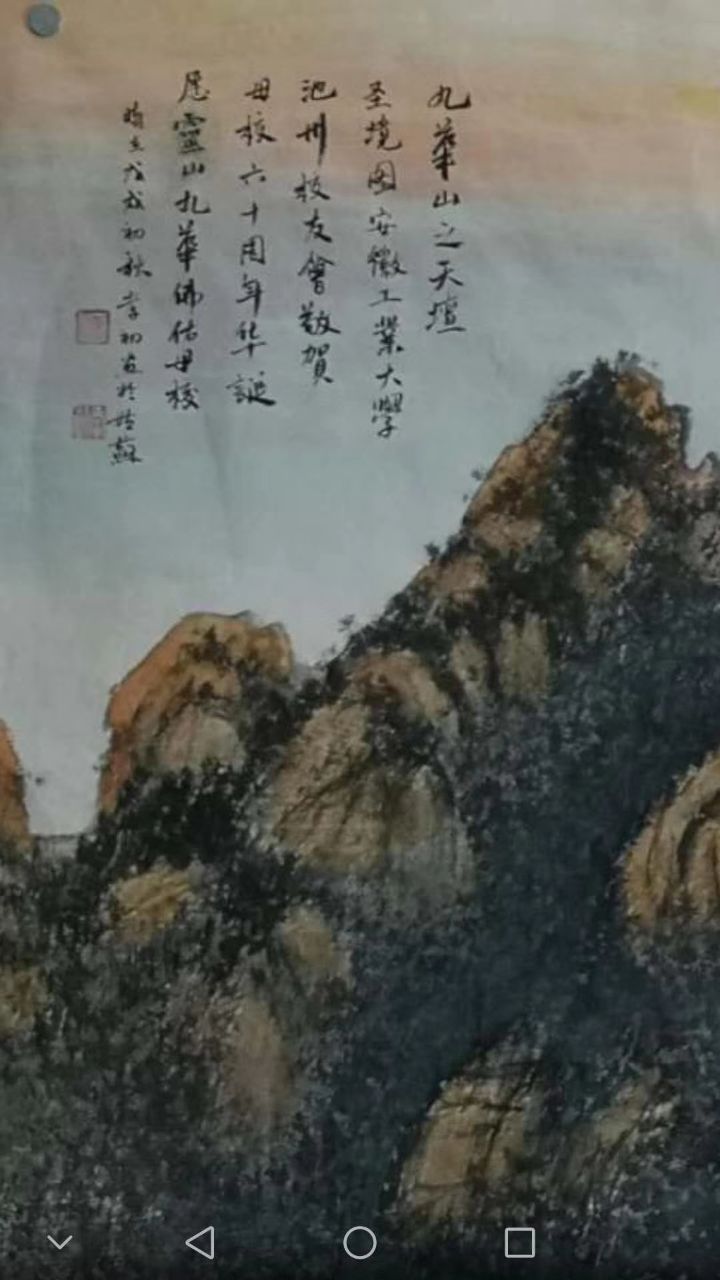 九華山之天壇
圣境图安徽工業大學
池州校友會敬賀
母校六十周年华誕
愿靈山九華佛佑母校
戊戌初秋李初画於姑蘇